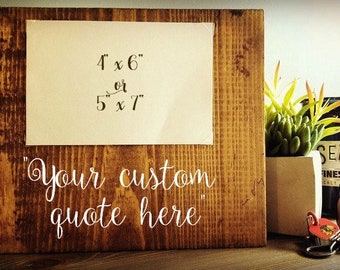 4" x 6"
or
5" x 7"
"Your custom
quote here"